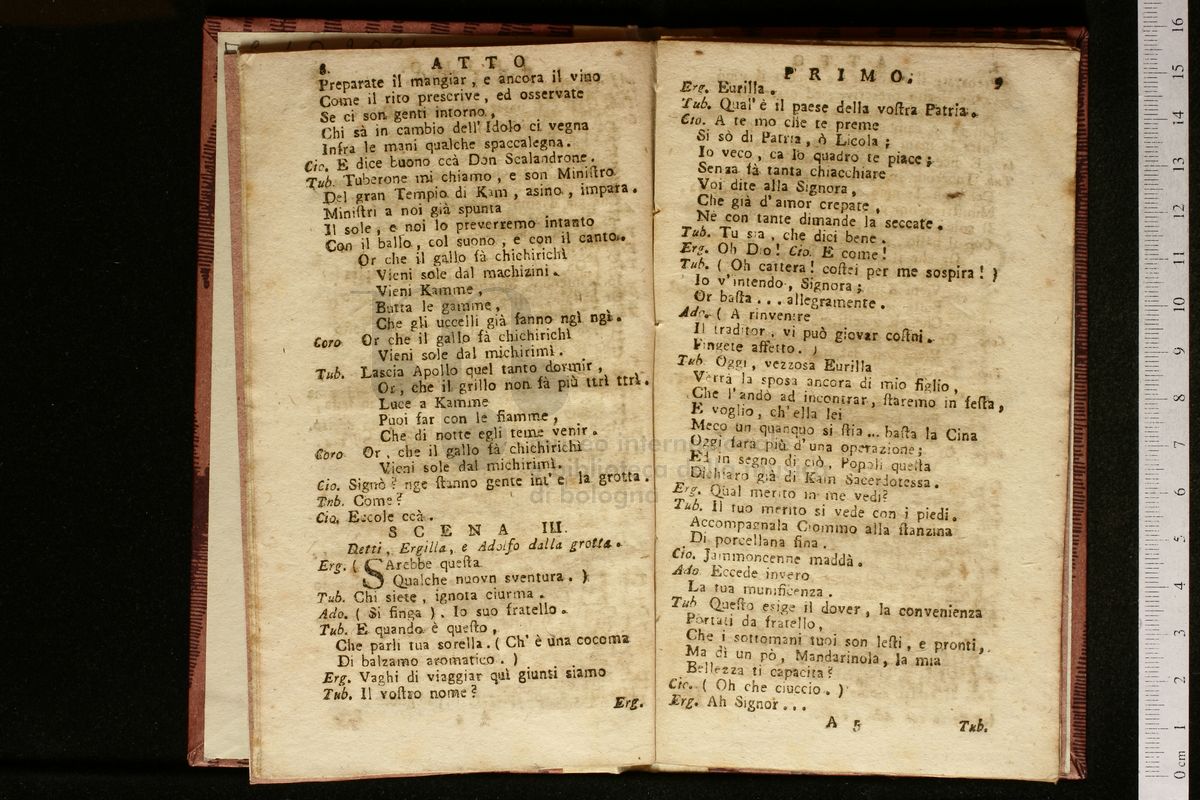 8. ATTO
Preparate il mangiar, e ancora il vino
Come il rito prescrive, ed osservate
Se ci son genti intorno,
Chi sà in cambio dell' Idolo ci vegna
Infra le mani qualche spaccalegna.
Cio. E dice buono ccà Don Scalandrone.
Tub. Tuberone mi chiamo, e son Miniſtro
Del gran Tempio di Kam, asino, impara.
Miniſtri a noi già spunta
Il sole, e noi lo preverremo intanto
Con il ballo, col suono, e con il canto.
Or che il gallo fà chichirichì
Vieni sole dal machizini.
Vieni Kamme,
Butta le gamme,
Che gli uccelli già fanno ngì ngì.
Coro Or che il gallo fà chichirichì
Vieni sole dal michirimì.
Tub. Lascia Apollo quel tanto dormir,
Or, che il grillo non fà più ttrì ttrì.
Luce a Kamme
Puoi far con le fiamme,
Che di notte egli teme venir.
Coro Or, che il gallo fà chichirichì
Vieni sole dal michirimì.
Cio. Signò? nge ſtanno gente int' e la grotta.
Tnb. Come?
Cio. Eccole ccà.
SCENA III.
Detti, Ergilla, e Adolfo dalla grotta.
Erg. ( SArebbe queſta
Qualche nuovn sventura. )
Tub. Chi siete, ignota ciurma.
Ado. ( Si finga ). Io suo fratello.
Tub. E quando è queſto,
Che parli tua sorella. ( Ch' è una cocoma
Di balzamo aromatico. )
Erg. Vaghi di viaggiar quì giunti siamo
Tub. Il voſtro nome?
Erg.
PRIMO. 9
Erg. Eurilla.
Tub. Qual' è il paese della voſtra Patria.
Cio. A te mo che te preme
Si sò di Patria, ò Licola;
Io veco, ca lo quadro te piace;
Senza fà tanta chiacchiare
Voi dite alla Signora,
Che già d'amor crepate,
Ne con tante dimande la seccate.
Tub. Tu sia, che dici bene.
Erg. Oh Dio! Cio. E come!
Tub. ( Oh cattera! coſtei per me sospira! )
Io v'intendo, Signora;
Or baſta... allegramente.
Ado. ( A rinvenire
Il traditor, vi può giovar coſtni.
Fingete affetto. )
Tub Oggi, vezzosa Eurilla
Verrà la sposa ancora di mio figlio,
Che l'andò ad incontrar, ſtaremo in feſta,
E voglio, ch'ella lei
Meco un quanquo si ſtia... baſta la Cina
Oggi farà più d'una operazione;
Ed in segno di ciò, Popoli queſta
Dichiaro già di Kam Sacerdotessa.
Erg. Qual merito in me vedi?
Tub. Il tuo merito si vede con i piedi.
Accompagnala Ciommo alla ſtanzina
Di porcellana fina.
Cio. Jammoncenne maddà.
Ado Eccede invero
La tua munificenza.
Tub Queſto esige il dover, la convenienza
Portati da fratello,
Che i sottomani tuoi son leſti, e pronti,
Ma dì un pò, Mandarinola, la mia
Bellezza ti capacita?
Cio. ( Oh che ciuccio. )
Erg. Ah Signor...
A 5 Tub.